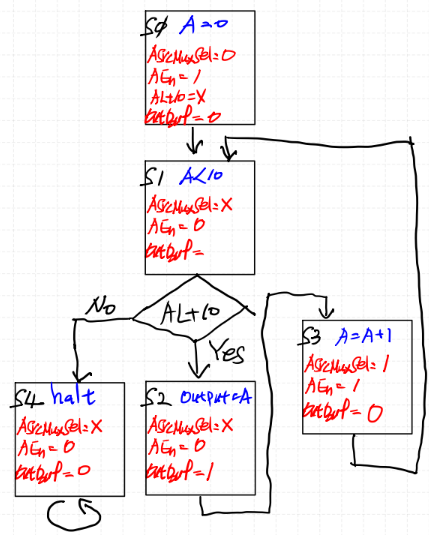 S0 A=0
ASrcMuxSel=0
AEn=1
ALt10=X
OutBuf=0
S1 A<10
ASrcMuxSel=X
AEn=0
OutBuf=
No
ALt10
Yes
S3 A=A+1
ASrcMuxSel=1
AEn=1
OutBuf=0
S4 halt
ASrcMuxSel=X
AEn=0
OutBuf=0
S2 OutPut=A
ASrcMuxSel=X
AEn=0
OutBuf=1